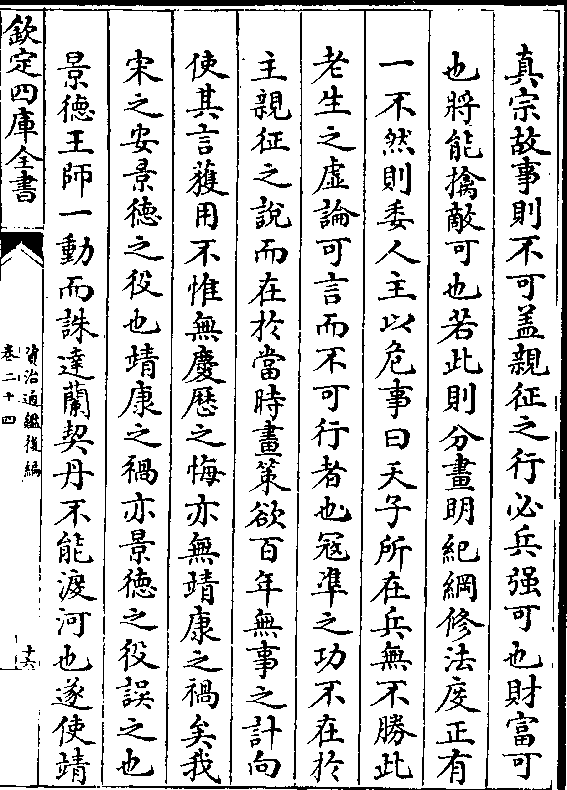 真宗故事則不可盖親征之行必兵强可也財富可
也將能擒敵可也若此則分畫明紀綱修法度正有
一不然則委人主以危事曰天子所在兵無不勝此
老生之虛論可言而不可行者也冦凖之功不在於
主親征之說而在於當時畫策欲百年無事之計向
使其言獲用不惟無慶厯之悔亦無靖康之禍矣我
宋之安景德之役也靖康之禍亦景德之役誤之也
景德王師一動而誅達蘭契丹不能渡河也遂使靖
欽定四庫全書
資治通鑑後編
卷二十四
十六